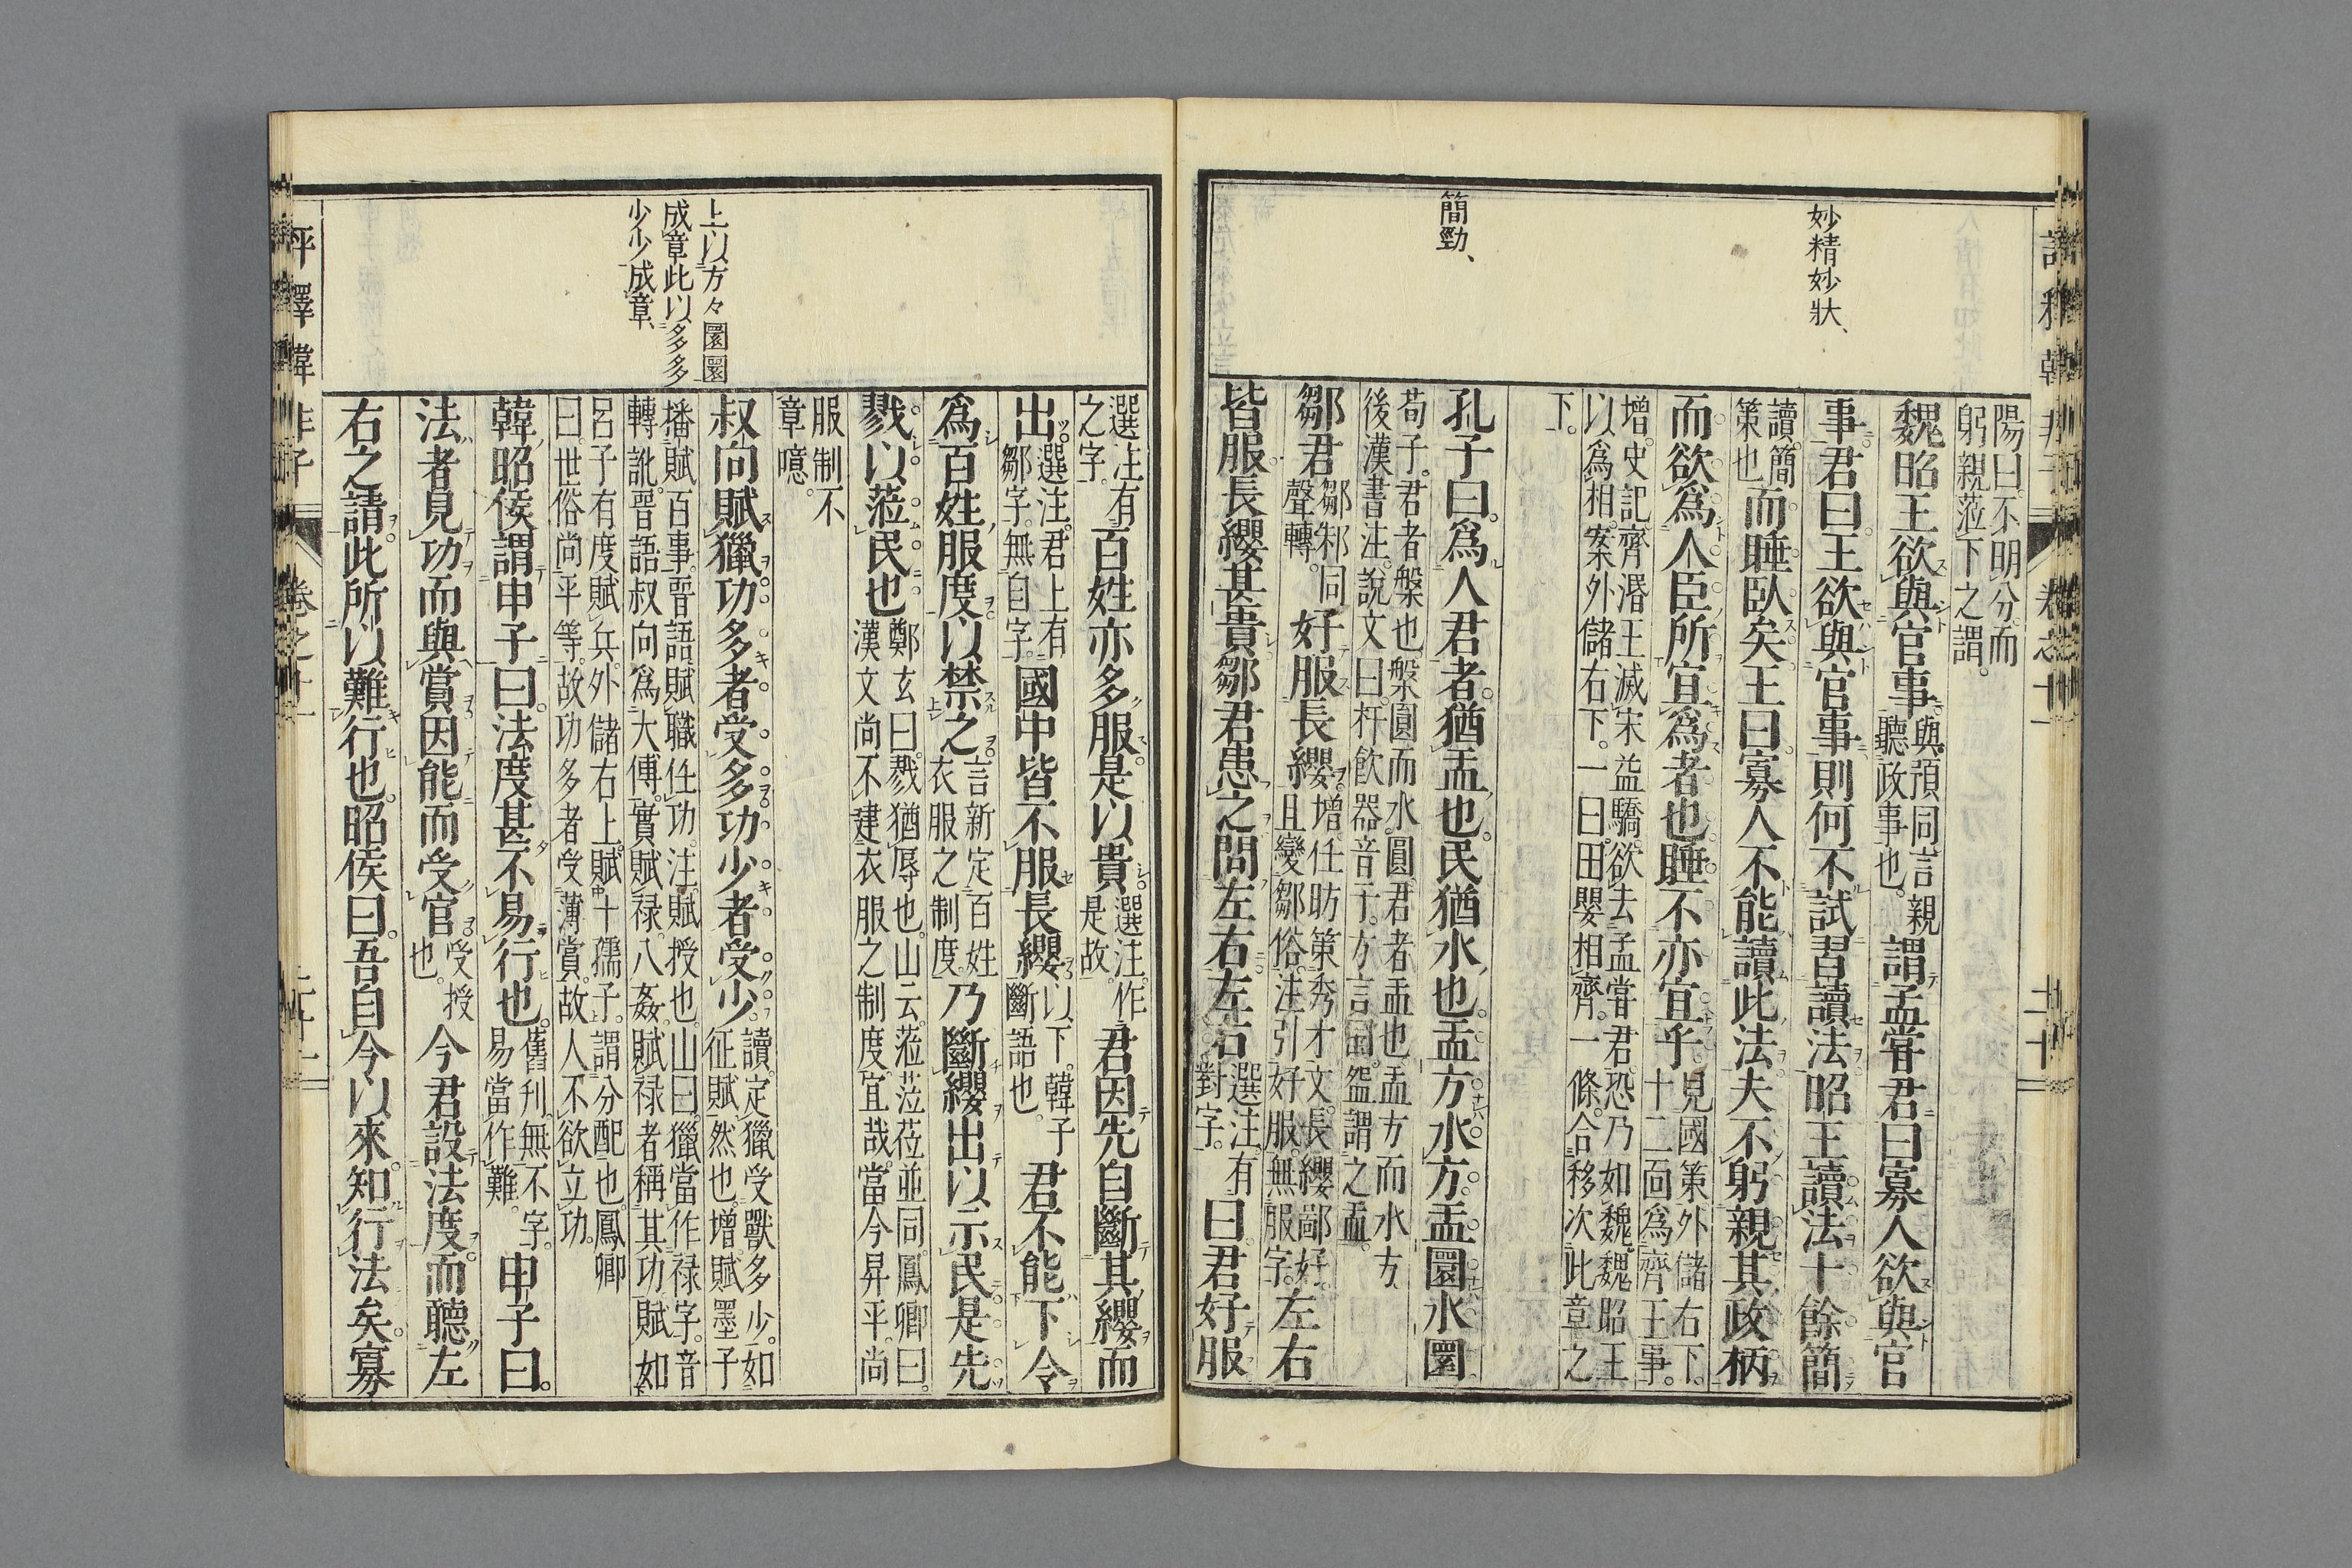 妙精妙狀、
簡勁、
陽曰。不明分。而
躬親蒞下之謂。
魏昭王欲與官事。與預同。言親聽政事也。謂孟嘗君曰寡人欲與官
事。君曰。王欲與官事。則何不試習讀法。昭王讀法十餘簡
讀。簡策也而睡臥矣。王曰。寡人不能讀此法。夫不躬親其政柄
而欲爲人臣所宜爲者也。睡不亦宜乎。見國策外儲右下。十二回爲齊王事。
增。史記齊湣王滅宋益驕。欲去孟嘗君。恐乃如魏。魏昭王
以爲相。案外儲右下。一曰。田嬰相齊。一條。合移次此章之
下。
孔子曰。爲人君者。猶盂也。民猶水也。盂方水方。盂圜水圜。
荀子。君者槃也。槃圓而水圓。君者盂也。盂方而水方
後漢書注。說文曰。杅飲器。音于。方言曰。盌謂之盂。
鄒君鄒邾同聲轉。好服長纓。增。任昉策秀才文。長纓鄙好。且變鄒俗。注引好服。無服字。左右
皆服長纓甚貴。鄒君患之。問左右。左右選注有對字。曰。君好服
上以方々圜圜
成章此以多多
少少成章、
選注有之字。百姓亦多服。是以貴。選注。作是故。君因先自斷其纓而
出。選注。君上有鄒字。無自字。國中皆不服長纓。以下。韓子斷語也。君不能下令
爲百姓服度以禁之。言新定百姓衣服之制度。乃斷纓出以示民。是先
戮以蒞民也鄭玄曰。戮猶辱也。山云。蒞莅並同。鳳卿曰。漢文尚不建衣服之制度。宜哉。當今昇平。尚
服制不章噫。
叔向賦獵。功多者受多。功少者受少。讀。定獵受獸多少。如征賦然也。增。賦。墨子
播賦百事。晉語。賦職任功。注。賦授也。山曰。獵當作祿字。音
轉訛。晉語。叔向爲大傅。實賦祿。八姦。賦祿者稱其功賦如
呂子有度賦兵。外儲右上。賦十孺子。謂分配也。鳳卿
曰。世俗尚平等。故功多者受薄賞。故人不欲立功。
韓昭侯謂申子曰。法度甚不易行也。舊刊。無不字。易當作難。申子曰。
法者見功而與賞。因能而受官。受授也。今君設法度。而聽左
右之請。此所以難行也。昭侯曰。吾自今以來。知行法矣。寡